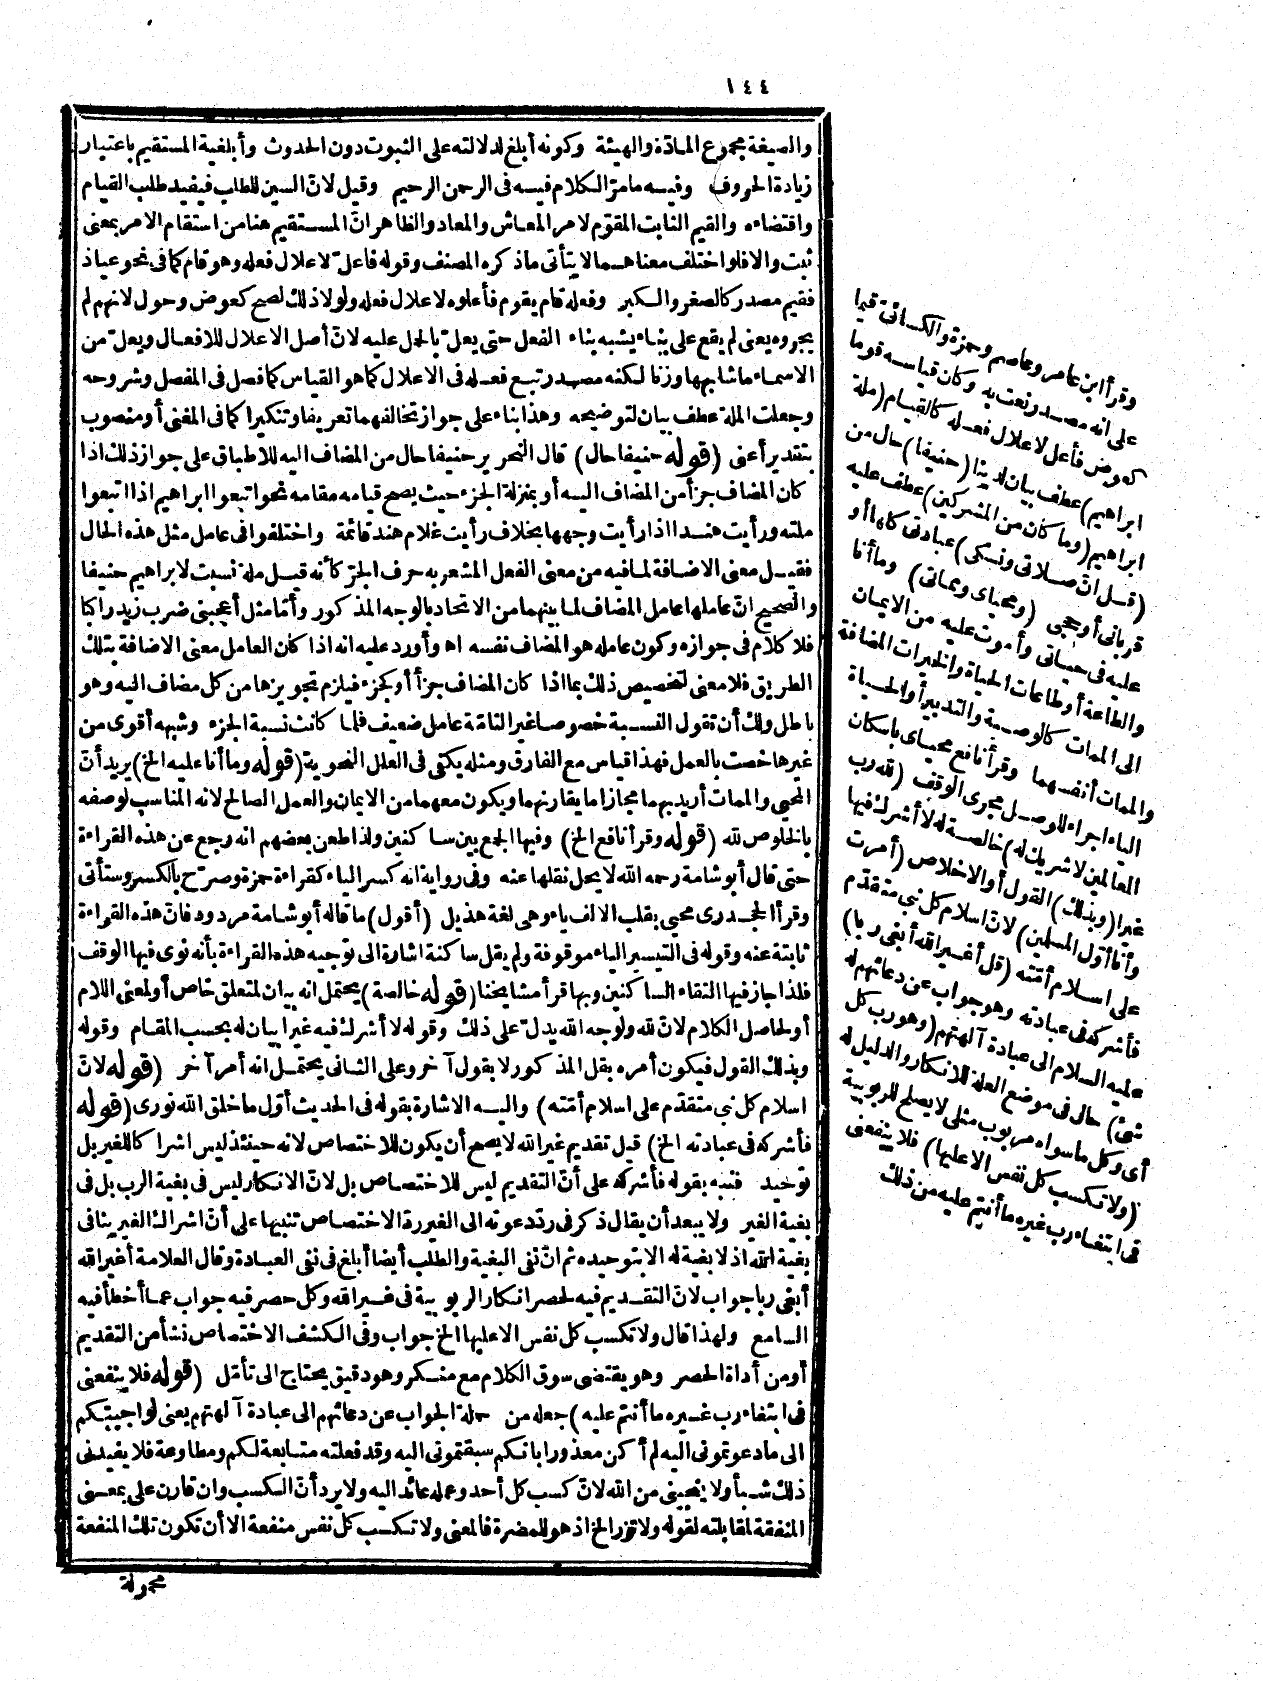 ١٤٤
والصيغة مجموع المادّة والهيئة وكونه أبلغ لدلالته على الثبوت دون الحدوث وأبلغية المستقيم باعتبار
زيادة الحروف وفيه مامرّ الكلام فيه فى الرحمن الرحيم وقيل لانّ السين للطلب فيفيد طلب القيام
واقتضاءه والقيم الثابت المقوّم لامر المعاش والمعاد والظاهر انّ المستقيم هنا من استقام الامر بمعنى
ثبت والا فلو اختلف معناهما لا يتأتى ماذكره المصنف وقوله فاعلّ لاعلال فعله وهو قام كما فى نحو عياذ
فقيم مصدر كالصغر والكبر وفعله قام يقوم فأعلوه لاعلال فعله ولولا ذلك لصح كعوض وحول لانهم لم
يجروه يعنى لم يقع على بناء يشبه بناء الفعل حتى يعلّ بالحمل عليه لانّ أصل الاعلال للافعال ويعلّ من
الاسماء ماشابهها وزنا لكنه مصدر تبع فعله فى الاعلال كما هو القياس كما فصل فى المفصل وشروحه
وجعلت الملة عطف بيان لتوضيحه وهذا بناء على جواز تخالفهما تعريفا وتنكيرا كما فى المغنى أو منصوب
بتقدير أعنى (قوله حنيفا حال) قال التحرير حنيفا حال من المضاف اليه للاطباق على جواز ذلك اذا
كان المضاف جزأ من المضاف اليه أو بمنزلة الجزء حيث يصح قيامه مقامه نحو اتبعوا ابراهيم اذا اتبعوا
ملته ورأيت هندا اذا رأيت وجهها بخلاف رأيت غلام هند قائمة واختلفوا فى عامل مثل هذه الحال
فقيل معنى الاضافة لما فيه من معنى الفعل المشعر به حرف الجرّ كأنه قيل ملة نسبت لابراهيم حنيفا
والصحيح انّ عاملها عامل المضاف لما بينهما من الاتحاد بالوجه المذكور وأمّا مثل أعجبنى ضرب زيد راكبا
فلا كلام فى جوازه وكون عامله هو المضاف نفسه اه وأورد عليه انه اذا كان العامل معنى الاضافة بتلك
الطريق فلا معنى لتخصيص ذلك بما اذا كان المضاف جزأ أو كجزء فيلزم تجويزها من كل مضاف اليه وهو
باطل ولك أن تقول النسبة خصوصا غير التامّة عامل ضعيف فلما كانت نسبة الجزء وشبهه أقوى من
غيرها خصت بالعمل فهذا قياس مع الفارق ومثله يكفى فى العلل النحوية (قوله وما أنا عليه الخ) يريد أنّ
المحيى والممات أريد بهما مجازا ما يقارنهما ويكون معهما من الايمان والعمل الصالح لانه المناسب لوصفه
بالخلوص لله (قوله وقرأ نافع الخ) وفيها الجمع بين ساكنين ولذا طعن بعضهم انه رجع عن هذه القراءة
حتى قال أبو شامة رحمه الله لا يحل نقلها عنه وفى رواية انه كسر الياء كقراءة حمزة وصرّح بالكسر وستأتى
وقرأ الجحدرى محيى بقلب الالف ياء وهى لغة هذيل (أقول) ما قاله أبو شامة مردود فانّ هذه القراءة
ثابتة عنه وقوله فى التيسير الياء موقوفة ولم يقل ساكنة اشارة الى توجيه هذه القراءة بأنه نوى فيها الوقف
فلذا جاز فيها التقاء الساكنين وبها قرأ مشايخنا (قوله خالصة) يحتمل انه بيان لمتعلق خاص أو لمعنى اللام
أو لحاصل الكلام لانّ لله ولوجه الله يدلّ على ذلك وقوله لا أشرك فيه غيرا بيان له بحسب المقام وقوله
وبذلك القول فيكون أمره بقل المذكور لا بقول آخر وعلى الثانى يحتمل انه أمر آخر (قوله لانّ
اسلام كل نبى متقدّم على اسلام أمّته) واليه الاشارة بقوله فى الحديث أوّل ما خلق الله نورى (قوله
فأشركه فى عبادته الخ) قيل تقديم غير الله لا يصح أن يكون للاختصاص لانه حينئذ ليس اشراكا للغير بل
توحيد فنبه بقوله فأشركه على أنّ التقديم ليس للاختصاص بل لانّ الانكار ليس فى بغية الرب بل فى
بغية الغير ولا يبعد أن يقال ذكر فى ردّ دعوته الى الغير ردّة الاختصاص تنبيها على أنّ اشراك الغير ينافى
بغية الله اذ لا بغية له الا بتوحيده ثم انّ نفى البغية والطلب أيضا أبلغ فى نفى العبادة وقال العلامة أغير الله
أبغى ربا جواب لانّ التقديم فيه لحصر انكار الربوبية فى غير الله وكل حصر فيه جواب عما أخطأ فيه
السامع ولهذا قال ولا تكسب كل نفس الا عليها الخ جواب وفى الكشف الاختصاص نشأ من التقديم
أو من أداة الحصر وهو يقتضى سوق الكلام مع منكر وهو دقيق يحتاج الى تأمّل (قوله فلا ينفعنى
فى ابتغاء رب غيره ما أنتم عليه) جعله من جملة الجواب عن دعائهم الى عبادة آلهتهم يعنى لو أجبتكم
الى ما دعوتمونى اليه لم أكن معذورا بانكم سبقتمونى اليه وقد فعلته متابعة لكم ومطاوعة فلا يفيدنى
ذلك شيأ ولا ينجينى من الله لانّ كسب كل أحد وعمله عائد اليه ولا يرد أنّ الكسب وان قارن على بمعنى
المنفقة لمقابلته لقوله ولا تزر الخ اذ هو للمضرة فالمعنى ولا تكسب كل نفس منفعة الا أن تكون تلك المنفعة
محمولة
وقرأ ابن عامر وعاصم وحمزة والكسائىّ قيما
على انه مصدر نعت به وكان قياسه قوما
كعوض فأعل لاعلال فعله كالقيام (ملة
ابراهيم) عطف بيان لدينا (حنيفا) حال من
ابراهيم (وما كان من المشركين) عطف عليه
(قل انّ صلاتى ونسكى) عبادتى كلها أو
قربانى أو حجى (ومحياى ومماتى) وما أنا
عليه فى حياتى وأموت عليه من الايمان
والطاعة أو طاعات الحياة والخيرات المضافة
الى الممات كالوصية والتدبير أو الحياة
والممات أنفسهما وقرأ نافع محياى باسكان
الياء اجراء للوصل مجرى الوقف (لله رب
العالمين لا شريك له) خالصة له لا أشرك فيها
غيرا (وبذلك) القول أو الاخلاص (أمرت
وأنا أوّل المسلمين) لانّ اسلام كل نبى متقدّم
على اسلام أمّته (قل أغير الله أبغى ربا)
فأشركه فى عبادته وهو جواب عن دعائهم له
عليه السلام الى عبادة آلهتهم (وهو رب كل
شئ) حال فى موضع العلة للانكار والدليل له
أى وكل ما سواه مربوب مثلى لا يصلح للربوبية
(ولا تكسب كل نفس الا عليها) فلا ينفعنى
فى ابتغاء رب غيره ما أنتم عليه من ذلك